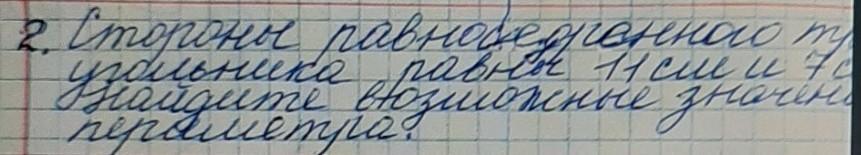 2. Стороны равнобедренного тр
угольника равны 11 см и 7 с
Найдите возможные значени
периметра.